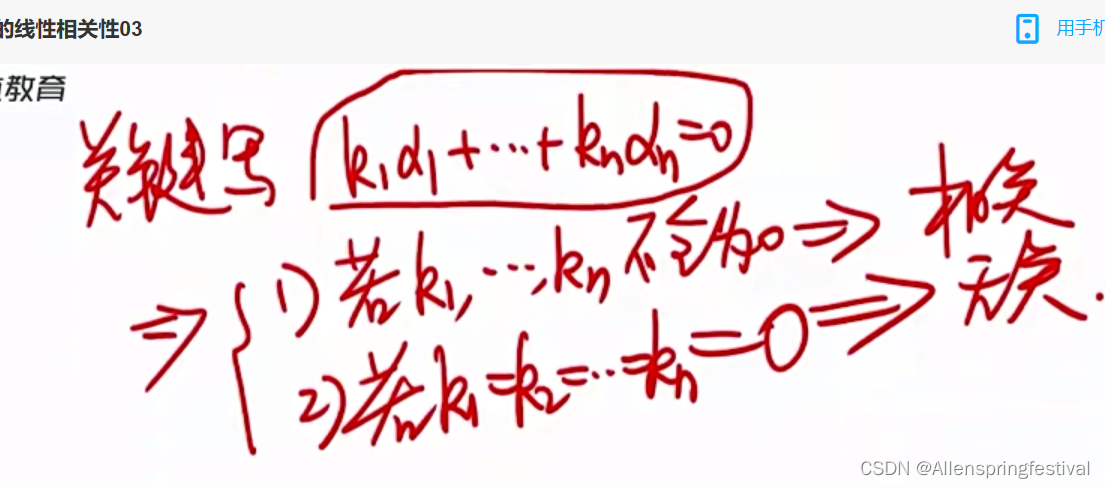 的线性相关性03
用手机
教育
关键写 k₁α₁+⋯+kₙαₙ=0
⇒ { 1) 若k₁,⋯,kₙ不全为0 ⇒ 相关
2) 若k₁=k₂=⋯=kₙ=0 ⇒ 无关.
CSDN @Allenspringfestival